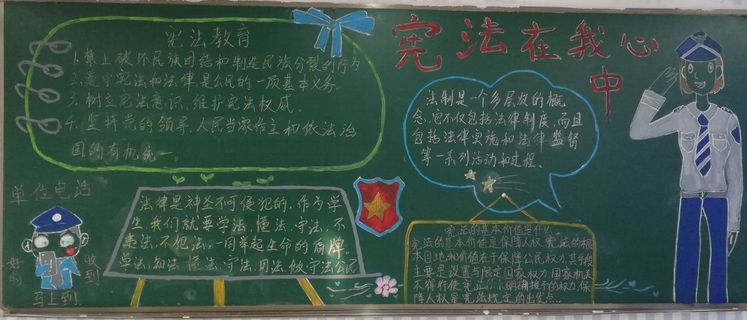 宪法教育
1.禁止破坏民族团结和制造民族分裂的行为
2.遵守宪法和法律是公民的一项基本义务
3.树立宪法意识,维护宪法权威.
4.坚持党的领导,人民当家作主和依法治
国的有机统一。
宪法在我心
中
法制是一个多层次的概
念,它不仅包括法律制度,而且
包括法律实施和法律监督
等一系列活动和过程.
单位电话
收到
好的
马上到!
法律是神圣不可侵犯的,作为学
生,我们就要学法,懂法,守法,不
违法,不犯法,一同举起生命的盾牌
学法,知法,懂法,守法,用法,做守法公民
宪法的基本价值是什么
宪法的基本价值是保障人权,宪法的根
本目地和价值在于保障公民权力,其手段
主要是设置与限定国家权力,国家机关
不得行使宪法明确授予的权力,保
障人权是宪法规定的出发点.